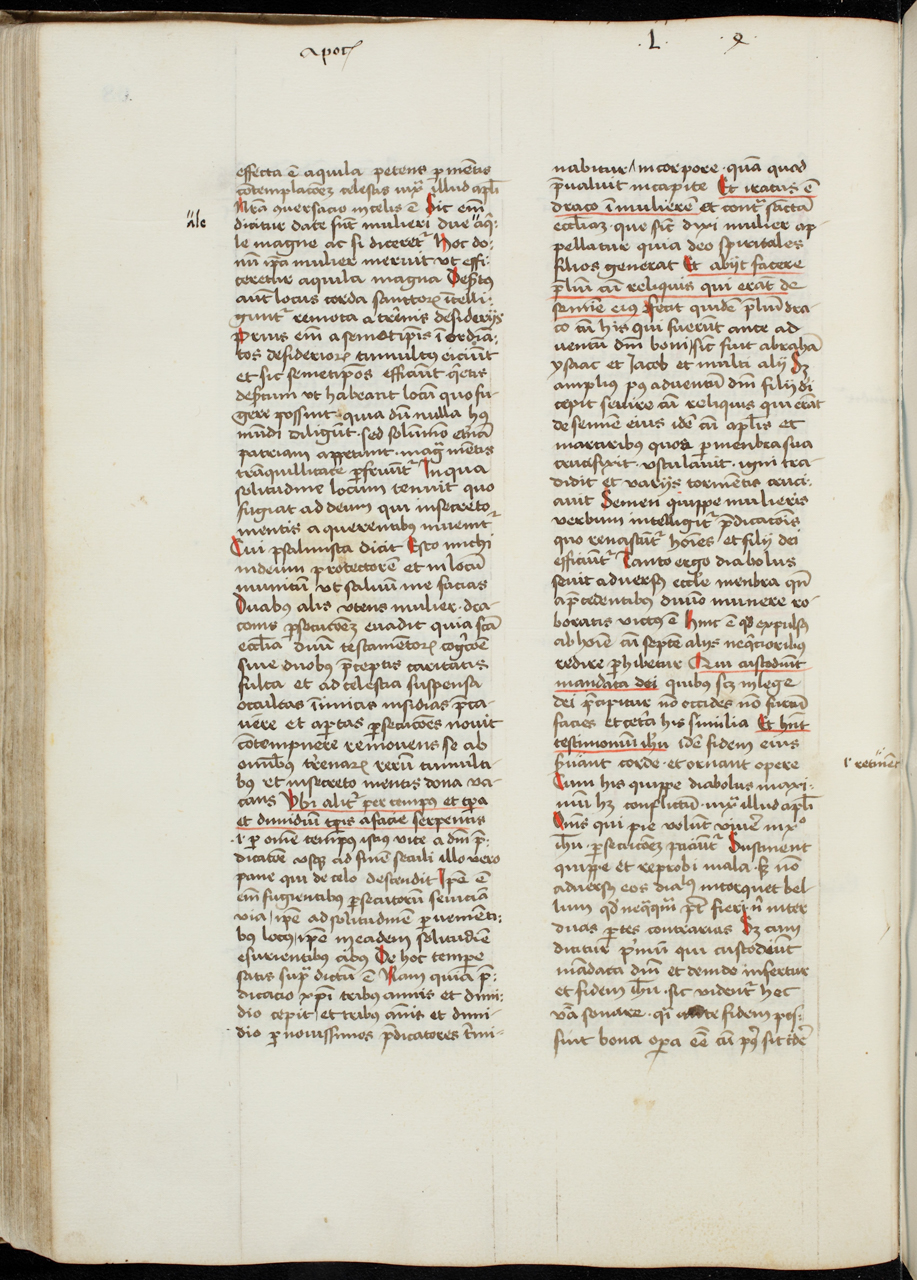 Apoc̄
.L. .9.
effecta ē aquila petens p mētis
cōtemplacōeȝ celestia iux̄ illud apl̄i
Nr̄a ꝯuersacio in celis ē Sic em̄
ale
dicitur date sūt mulieri due aq̄:
le magne ac si diceret᷑ Hoc do:
nū ip̄a mulier meruit vt effi:
ceretur aquila magna Deẜtus
aut̄ locus corda sanctorꝝ ītelli:
gunt᷑ remota a tr̄enis desiderijs
Prius em̄ a semetip̄is īordīa:
tos desideriorꝝ tumultus eiciūt
et sic semetip̄os efficiūt q̄etis
deẜtum vt habeant locū quo fu-
gere possint quia dū nulla hꝰ
mūdi diligūt sed solūmō et̄nā
patriam appetunt maḡ mētis
trāquillitate ꝑfruūt᷑ In qua
solitudine locum tenuit quo
fugiat ad deum qui in secreto
mentis a querentibꝰ inuenit᷑
Cui psalmista dicit Esto michi
in deum protectorē et in locū
munitū vt saluū me facias
Duabꝰ alis vtens mulier dra-
conis ꝑsecucōeȝ euadit quia sc̄a
eccl̄ia duū testamentorꝝ cogicōe
siue duobꝰ p̄ceptis caritatis
fulta et ad celestia suspensa
occultas inimici insidias p̄ca-
uere et aptas ꝑsecucōes nouit
cōtempnere remouens se ab
om̄ibꝰ tr̄enarꝝ rerū tumulti-
bꝰ et in secreto mentis dona va-
cans Vbi alit᷑ per tempus et tp̄a
et dimidiū tp̄is a facie serpentis
.i. p om̄e tempus istiꝰ vite a dm̄ p̄-
dicatōe vsqꝫ ad finē seculi illo vero
pane qui de celo descendit Ip̄e ē
em̄ fugientibꝰ ꝑsecutorū seuiciā
via / ip̄e ad solitudinē peruenieti:
bꝰ locꝰ / ip̄e in eadem solitudīe
esurientibꝰ cibꝰ De hoc tempore
satis sup̄ dictū ē Nam quia p̄:
dicacio xp̄i tribus annis et dimi:
dio cepit / et tribus ānis et dimi-
dio p nouissimos p̄dicatores t̄mi-
nabitur / in corpore quā quod
p̄ualuit in capite Et iratus ē
draco ī mulierē Et contra sāctā
eccl̄iaȝ que sic̄ dixi mulier ap-
pellatur quia deo spiritales
filios generat Et abijt facere
p̄liū cū reliquis qui erāt de
semīe eiꝰ Fecit quidē p̄liū dra-
co cū his qui fuerūt ante ad
uentū dm̄ boni / sic̄ fuit abrahā
ysaac et Jacob et multi alij Sȝ
amplius pꝰ aduentū dm̄ filij di
cepit seuire cū reliquis qui erāt
de semīe eius idē cū apl̄is et
martiribus quos p menbra sua
crucifixit vstulauit igni tra-
didit et varijs tormētis cruci-
auit Semen quippe mulieris
verbum intelligit᷑ p̄dicatōis
quo renascūt᷑ hoīes et filij dei
efficiūt᷑ Tanto ergo diabolus
seuit aduersꝰ eccl̄e menbra qn̄
a p̄cedentibꝰ diuīo munere ro-
boratis victꝰ ē Hinc ē qd̄ expulsꝰ
ab hoīe cū septē alijs neq̄cioribꝰ
redire ꝑhibetur Qui custodiūt
mandata dei quibus scȝ in lege
dei p̄cipitur nō occides nō furtū
facies et cetera his similia Et hn̄t
testimoniū ih̄u idē fidem eius
fūant corde et ornant opere
l' retinēt
Cum his quippe diabolus maxi:
mū hȝ conflictū iux̄ illud apl̄i
Om̄s qui pie volūt viue᷑ in xp̄o
ih̄u ꝑsecucōeȝ paciūt᷑ Sustinent
quippe et reprobi mala sȝ nō
aduersꝰ eos dialꝰ intorquet bel-
lum qd̄ neq̄q̄ p̄t fieri nͥ inter
duas partes contrarias Sȝ cum
dicitur pͥmū qui custodiūt
mādata dm̄ et deinde infertur
et fidem ih̄u sic vident᷑ hec
v̄ba sonare qͥ ante fidem pos:
sint bona opa eē cū pꝰ sit idē